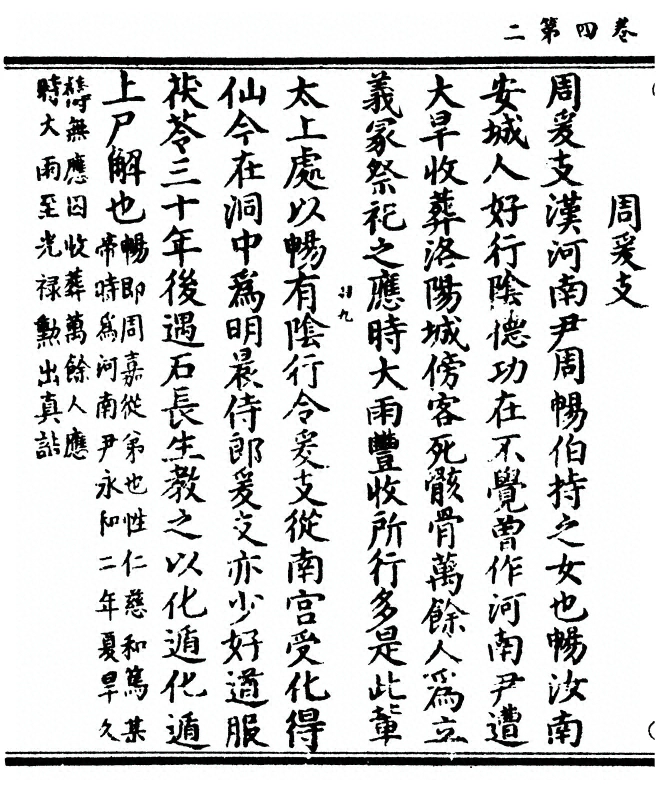 卷四第二
周爰支
周爰支漢河南尹周暢伯持之女也暢汝南
安城人好行陰德功在不覺曾作河南尹遭
大旱收葬洛陽城傍客死骸骨萬餘人爲立
義冢祭祀之應時大雨豐收所行多是此輩
太上處以暢有陰行令爰支從南宮受化得
仙今在洞中爲明晨侍郎爰支亦少好道服
茯苓三十年後遇石長生教之以化遁化遁
上尸解也暢即周嘉從弟也性仁慈和篤某
帝時爲河南尹永和二年夏旱久
禱無應因收葬萬餘人應
時大雨至光祿勲出真誥